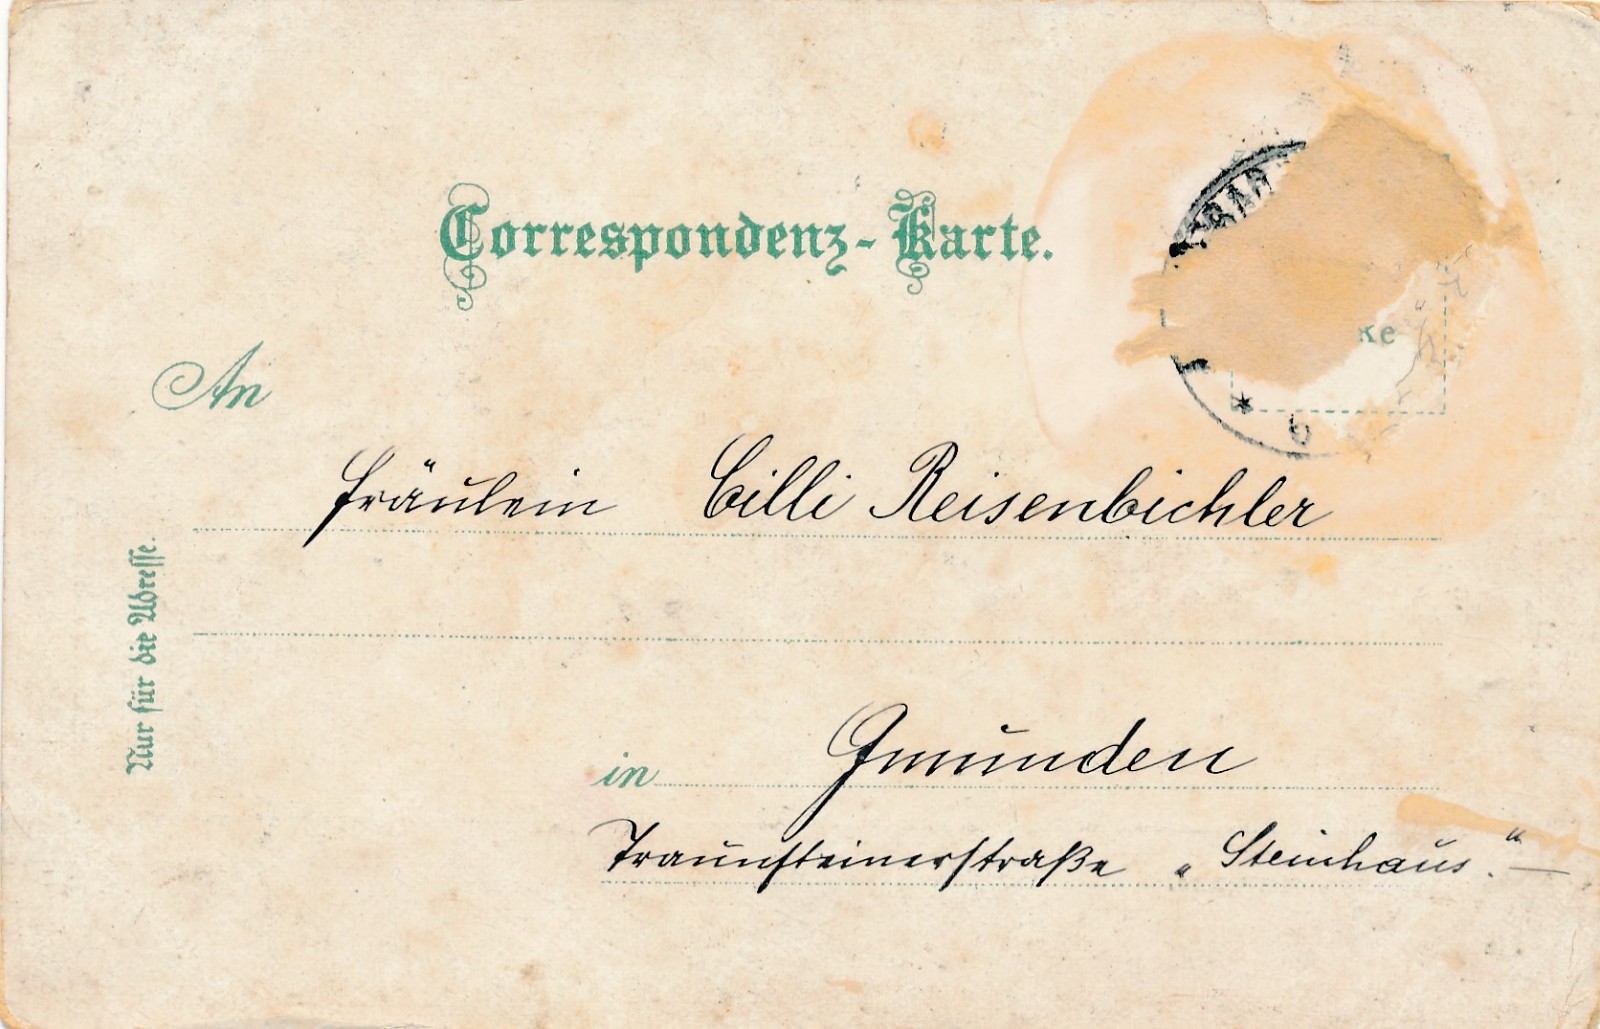 Correspondenz-Karte.
An
Fräulein Cilli Reisenbichler
in Gmunden
Traunsteinerstraße „Steinhaus."—
Nur für die Adresse.